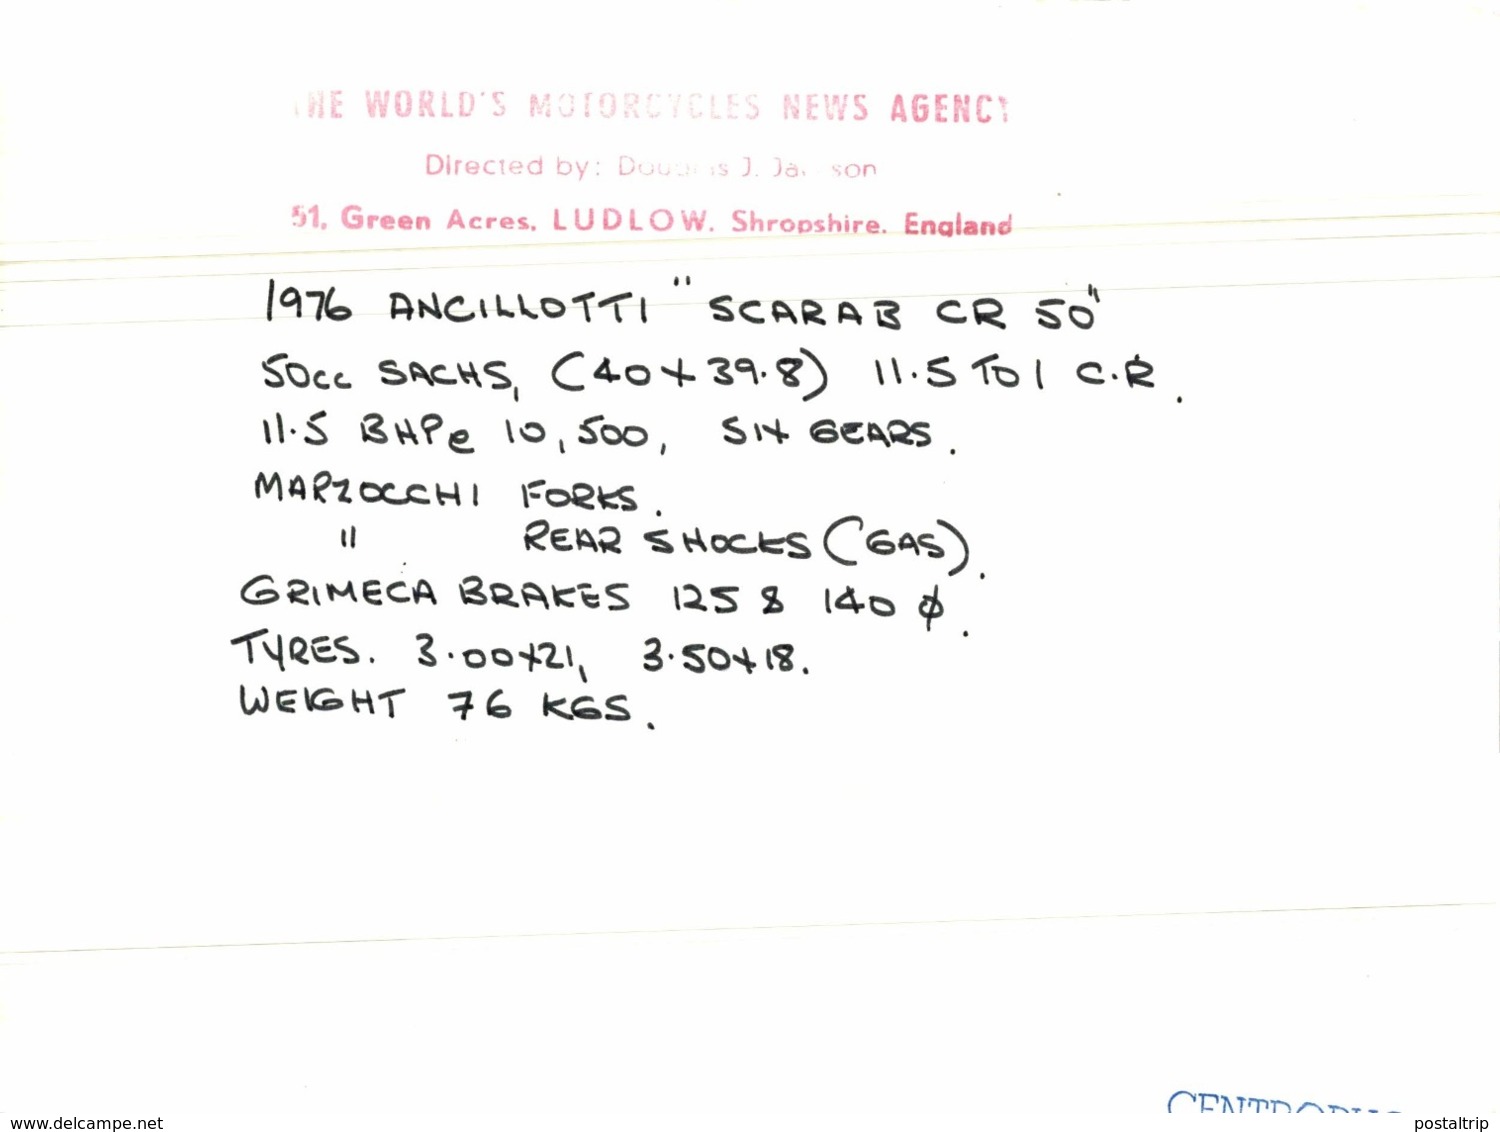 HE WORLD'S MOTORCYCLES NEWS AGENCY
Directed by: Douglas J. Ja son
51, Green Acres, LUDLOW. Shropshire. England
1976 ANCILLOTTI "SCARAB CR 50"
50cc SACHS, (40 + 39.8) 11.5 TO 1 C.R.
11.5 BHPe 10,500, SIX GEARS.
MARZOCCHI FORKS.
" REAR SHOCKS (GAS).
GRIMECA BRAKES 125 & 140 ϕ.
TYRES. 3.00+21, 3.50+18.
WEIGHT 76 KGS.
www.delcampe.net
postaltrip